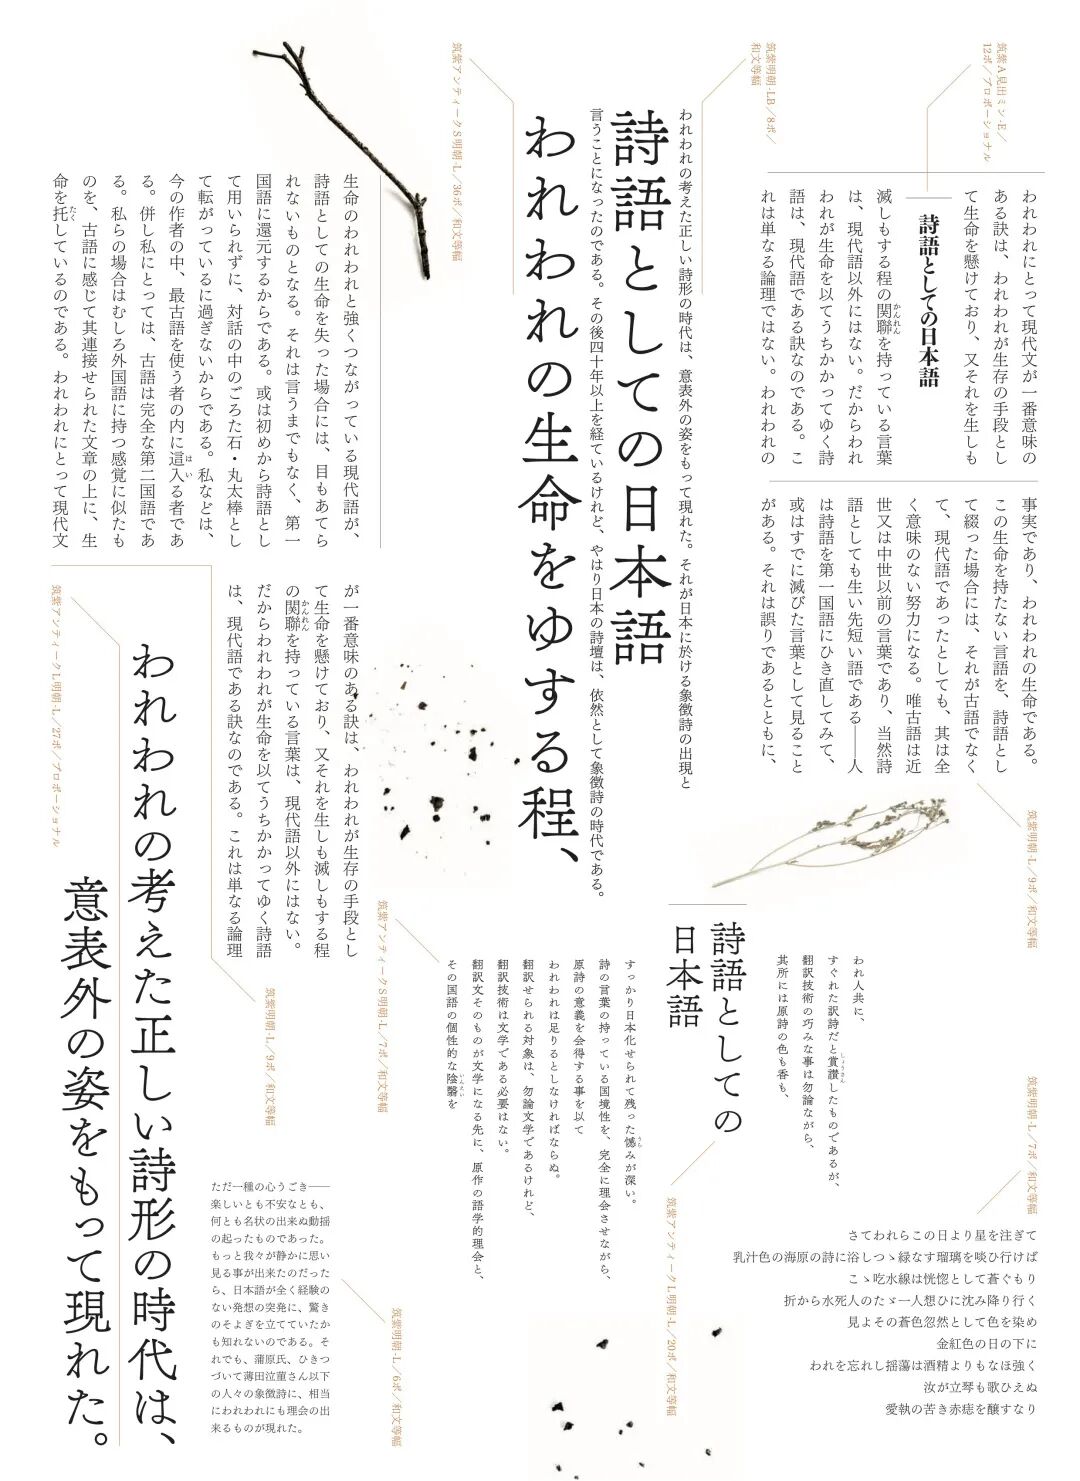 筑紫A見出ミン-E／
12ポ／プロポーショナル
詩語としての日本語
われわれにとって現代文が一番意味の
ある訣は、われわれが生存の手段とし
て生命を懸けており、又それを生しも
滅しもする程の関聯を持っている言葉
かんれん
は、現代語以外にはない。だからわれ
われが生命を以てうちかかってゆく詩
語は、現代語である訣なのである。こ
れは単なる論理ではない。われわれの
事実であり、われわれの生命である。
この生命を持たない言語を、詩語とし
て綴った場合には、それが古語でなく
て、現代語であったとしても、其は全
く意味のない努力になる。唯古語は近
世又は中世以前の言葉であり、当然詩
語としても生い先短い語である――人
は詩語を第一国語にひき直してみて、
或はすでに滅びた言葉として見ること
がある。それは誤りであるとともに、
筑紫明朝-L／9ポ／和文等幅
筑紫明朝-LB／8ポ／
和文等幅
われわれの考えた正しい詩形の時代は、意表外の姿をもって現れた。それが日本に於ける象徴詩の出現と
言うことになったのである。その後四十年以上を経ているけれど、やはり日本の詩壇は、依然として象徴詩の時代である。
筑紫アンティークS明朝-L／36ポ／和文等幅
詩語としての日本語
われわれの生命をゆする程、
生命のわれわれと強くつながっている現代語が、
詩語としての生命を失った場合には、目もあてら
れないものとなる。それは言うまでもなく、第一
国語に還元するからである。或は初めから詩語とし
て用いられずに、対話の中のごろた石・丸太棒とし
て転がっているに過ぎないからである。私などは、
今の作者の中、最古語を使う者の内に這入る者であ
はい
る。併し私にとっては、古語は完全な第二国語であ
る。私らの場合はむしろ外国語に持つ感覚に似たも
のを、古語に感じて其連接せられた文章の上に、生
命を托しているのである。われわれにとって現代文
たく
が一番意味のある訣は、われわれが生存の手段とし
て生命を懸けており、又それを生しも滅しもする程
の関聯を持っている言葉は、現代語以外にはない。
かんれん
だからわれわれが生命を以てうちかかってゆく詩語
は、現代語である訣なのである。これは単なる論理
筑紫明朝-L／9ポ／和文等幅
筑紫アンティークL明朝-L／27ポ／プロポーショナル
われわれの考えた正しい詩形の時代は、
意表外の姿をもって現れた。
詩語としての
日本語
筑紫アンティークL明朝-L／20ポ／和文等幅
われ人共に、
すぐれた訳詩だと賞讃したものであるが、
しょうさん
翻訳技術の巧みな事は勿論ながら、
其所には原詩の色も香も、
すっかり日本化せられて残った憾みが深い。
うら
詩の言葉の持っている国境性を、完全に理会させながら、
原詩の意義を会得する事を以て
われわれは足りるとしなければならぬ。
翻訳せられる対象は、勿論文学であるけれど、
翻訳技術は文学である必要はない。
翻訳文そのものが文学になる先に、原作の語学的理会と、
その国語の個性的な陰翳を
いんえい
筑紫アンティークS明朝-L／7ポ／和文等幅
筑紫明朝-L／7ポ／和文等幅
さてわれらこの日より星を注ぎて
乳汁色の海原の詩に浴しつゝ緑なす瑠璃を啖ひ行けば
こゝ吃水線は恍惚として蒼ぐもり
折から水死人のたゞ一人想ひに沈み降り行く
見よその蒼色忽然として色を染め
金紅色の日の下に
われを忘れし揺蕩は酒精よりもなほ強く
汝が立琴も歌ひえぬ
愛執の苦き赤痣を醸すなり
ただ一種の心うごき――
楽しいとも不安なとも、
何とも名状の出来ぬ動揺
の起ったものであった。
もっと我々が静かに思い
見る事が出来たのだった
ら、日本語が全く経験の
ない発想の突発に、驚き
のそよぎを立てていたか
も知れないのである。そ
れでも、蒲原氏、ひきつ
づいて薄田泣菫さん以下
の人々の象徴詩に、相当
にわれわれにも理会の出
来るものが現れた。
筑紫明朝-L／6ポ／和文等幅